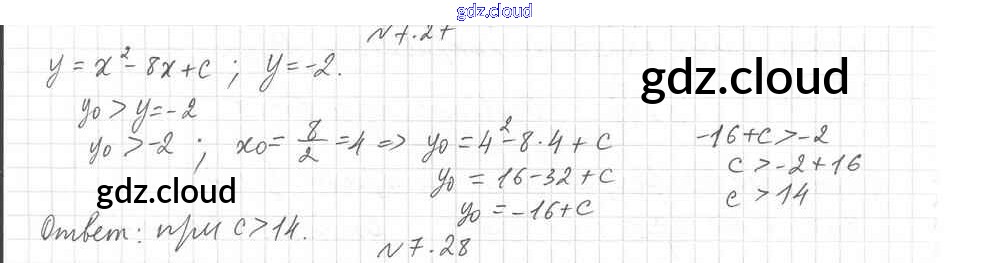 gdz.cloud
N 7.27
y = x² - 8x + c ; y = -2.
y₀ > y = -2
y₀ > -2 ; x₀ = 8/2 = 4 => y₀ = 4² - 8·4 + c
y₀ = 16 - 32 + c
y₀ = -16 + c
gdz.cloud
-16 + c > -2
c > -2 + 16
c > 14
gdz.cloud
Ответ: при c > 14.
N 7.28